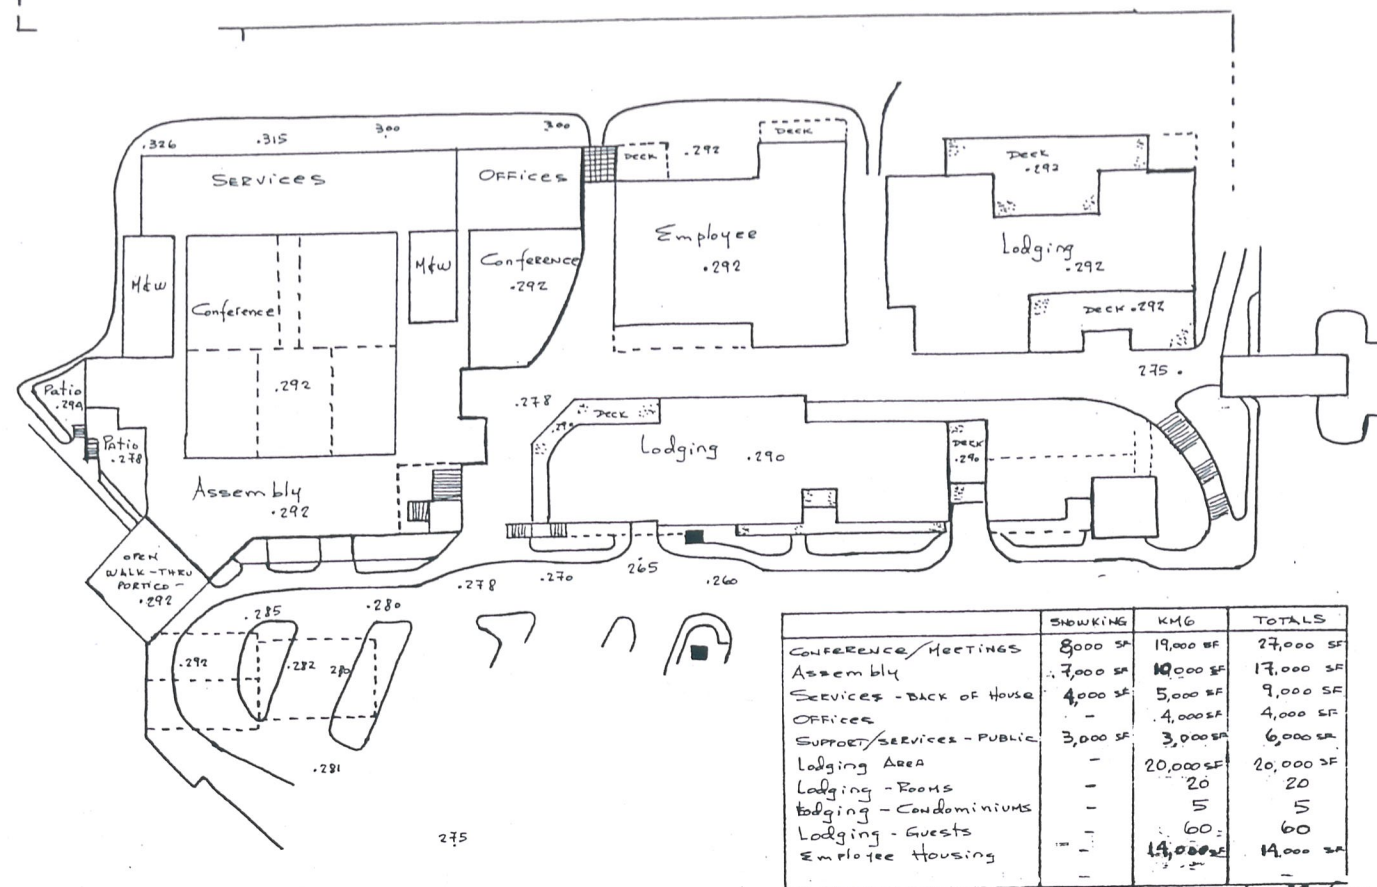 .326
.315
300
300
SERVICES
OFFICES
DECK
.292
DECK
DECK
.292
M&W
Conference
M&W
Conference
.292
Employee
.292
Lodging
.292
DECK .292
.292
275 .
Patio
.294
Patio
.278
.278
DECK
.290
Lodging .290
DECK
.290
Assembly
.292
OPEN
WALK-THRU
PORTICO -
.292
.278
.270
265
.260
.285
.280
.292
.282
280
.281
275
SNOWKING KM6 TOTALS
CONFERENCE/MEETINGS 8,000 SF 19,000 SF 27,000 SF
Assembly 7,000 SF 10,000 SF 17,000 SF
SERVICES - BACK OF HOUSE 4,000 SF 5,000 SF 9,000 SF
OFFICES - 4,000 SF 4,000 SF
SUPPORT/SERVICES - PUBLIC 3,000 SF 3,000 SF 6,000 SF
Lodging AREA - 20,000 SF 20,000 SF
Lodging - ROOMS - 20 20
Lodging - CONDOMINIUMS - 5 5
Lodging - Guests - 60 60
Employee Housing - 14,000 SF 14,000 SF
- -